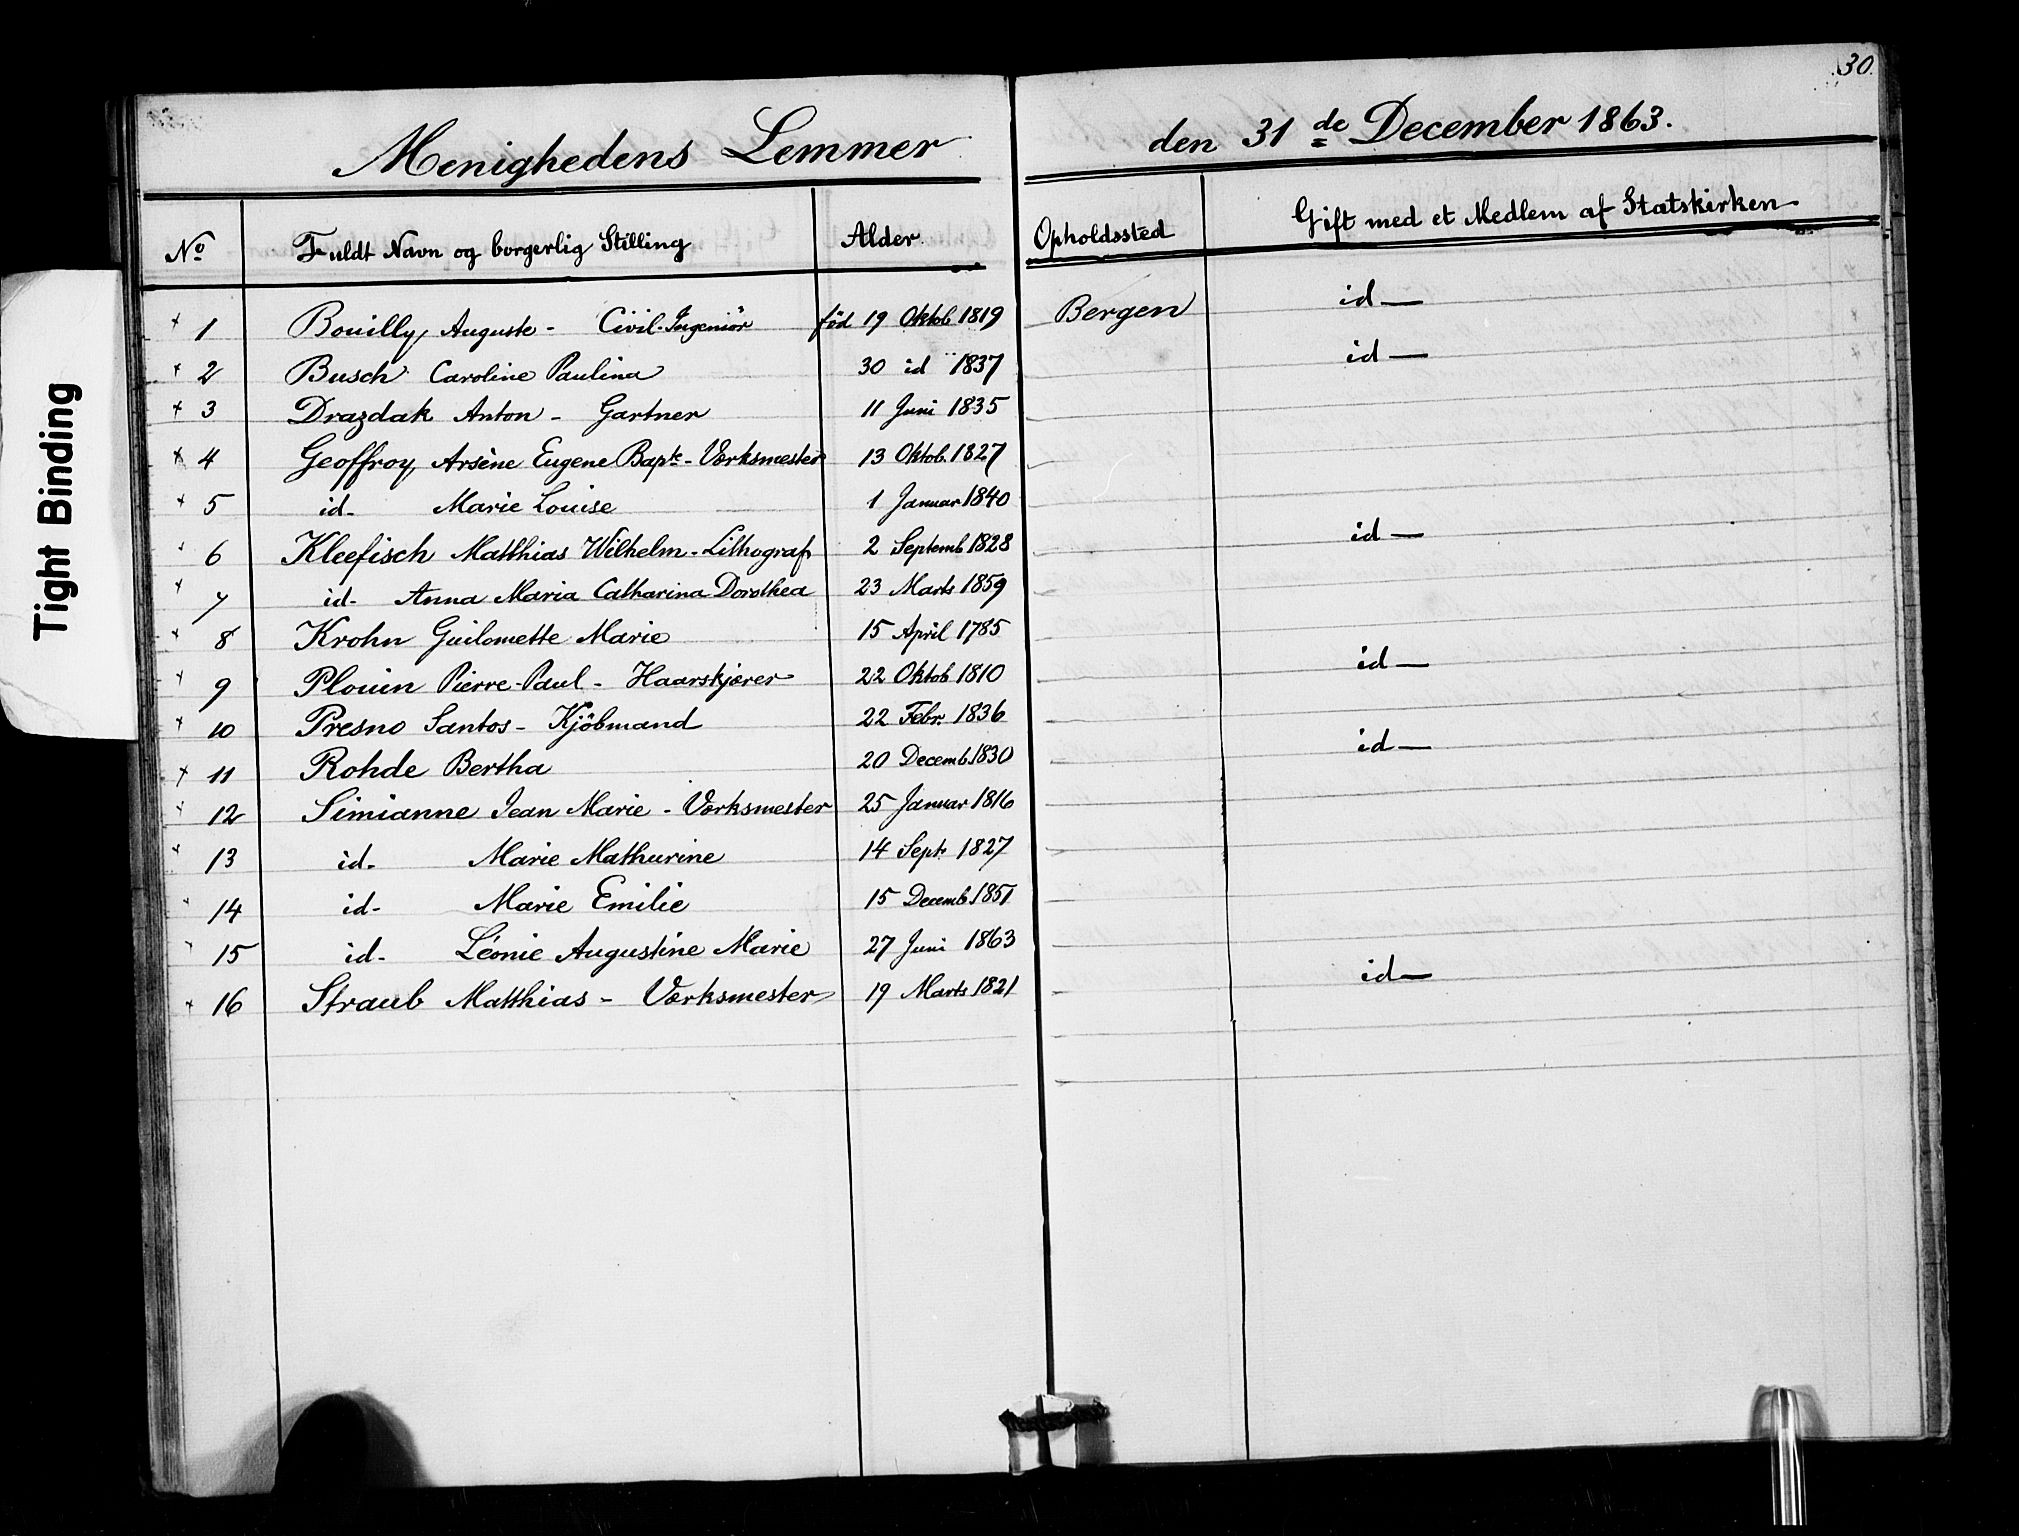 30.
Menighedens Lemmer den 31de December 1863.
No Fuldt Navn og borgerlig Stilling Alder. Opholdssted Gift med et Medlem af Statskirken
+ 1 Bouilly, Auguste - Civil-Ingeniör föd 19 Oktob 1819 Bergen id —
+ 2 Busch Caroline Paulina 30 id 1837 id —
+ 3 Drazdak Anton - Gartner 11 Juni 1835
+ 4 Geoffroy, Arsène Eugene Bapte - Værksmester 13 Oktob. 1827
+ 5 id - Marie Louise 1 Januar 1840
6 Kleefisch Matthias Wilhelm - Lithograf 2 Septemb 1828 id —
+ 7 id - Anna Maria Catharina Dorothea 23 Marts 1859
+ 8 Krohn Guilomette Marie 15 April 1785
+ 9 Plouin Pierre-Paul - Haarskjærer 22 Oktob 1810 id —
+ 10 Presno Santos - Kjöbmand 22 Febr. 1836
+ 11 Rohde Bertha 20 Decemb. 1830 id —
+ 12 Simianne Jean Marie - Værksmester 25 Januar 1816
+ 13 id - Marie Mathurine 14 Sept. 1827
14 id - Marie Emilie 15 Decemb 1851
15 id - Léonie Augustine Marie 27 Juni 1863
+ 16 Straub Matthias - Værksmester 19 Marts 1821 id —
Tight Binding